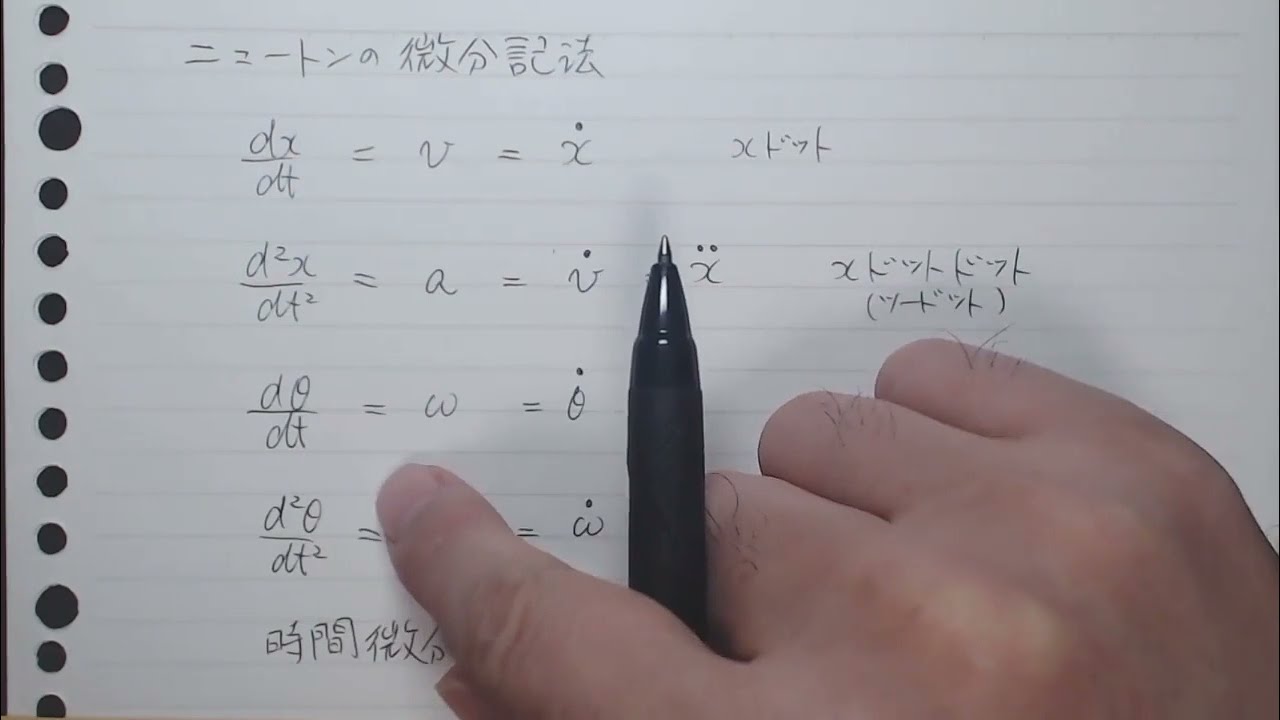 ニュートンの微分記法
dx/dt = v = ẋ xドット
d²x/dt² = a = v̇ = ẍ xドットドット
(ツードット)
dθ/dt = ω = θ̇
d²θ/dt² = = ω̇
時間微分